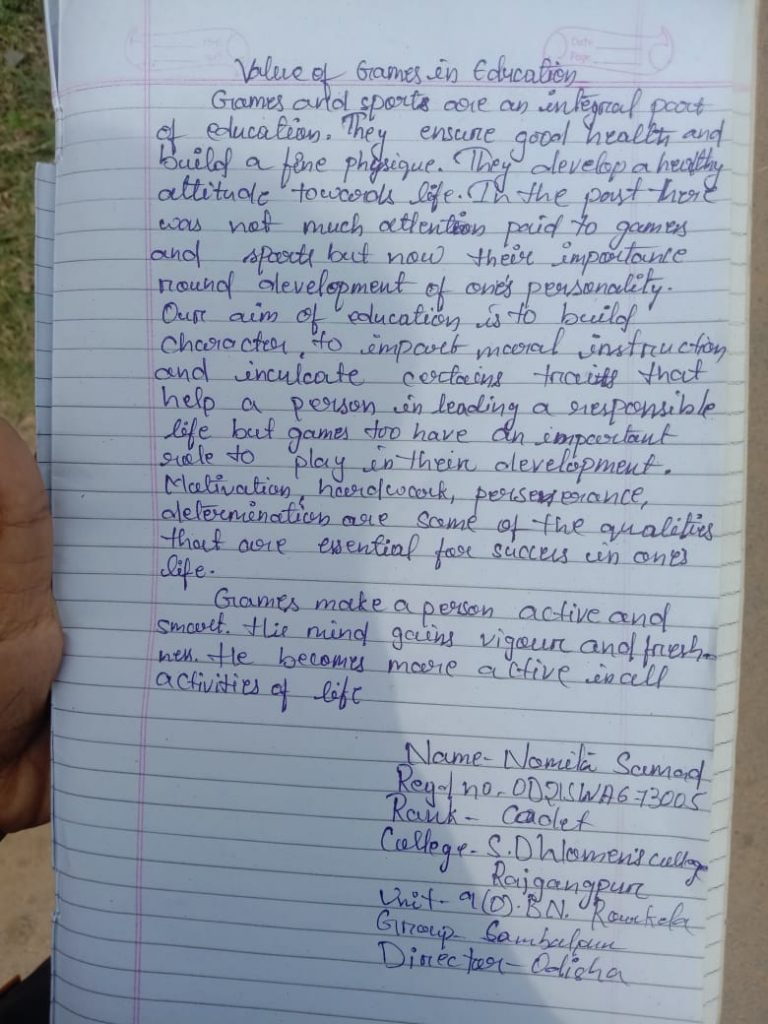 Value of Games in Education
Games and sports are an integral part
of education. They ensure good health and
build a fine physique. They develop a healthy
attitude towards life. In the past there
was not much attention paid to games
and sports but now their importance
round development of one's personality.
Our aim of education is to build
character, to impart moral instruction
and inculcate certains traits that
help a person in leading a responsible
life but games too have an important
role to play in their development.
Motivation, hardwork, perseverance,
determination are some of the qualities
that are essential for success in one's
life.
Games make a person active and
smart. His mind gains vigour and fresh-
ness. He becomes more active in all
activities of life
Name- Namita Samad
Regd no. OD21SWA673005
Rank - Cadet
College- S.D Women's college
Rajgangpur
Unit- 9(O).BN. Rourkela
Group- Sambalpur
Director- Odisha